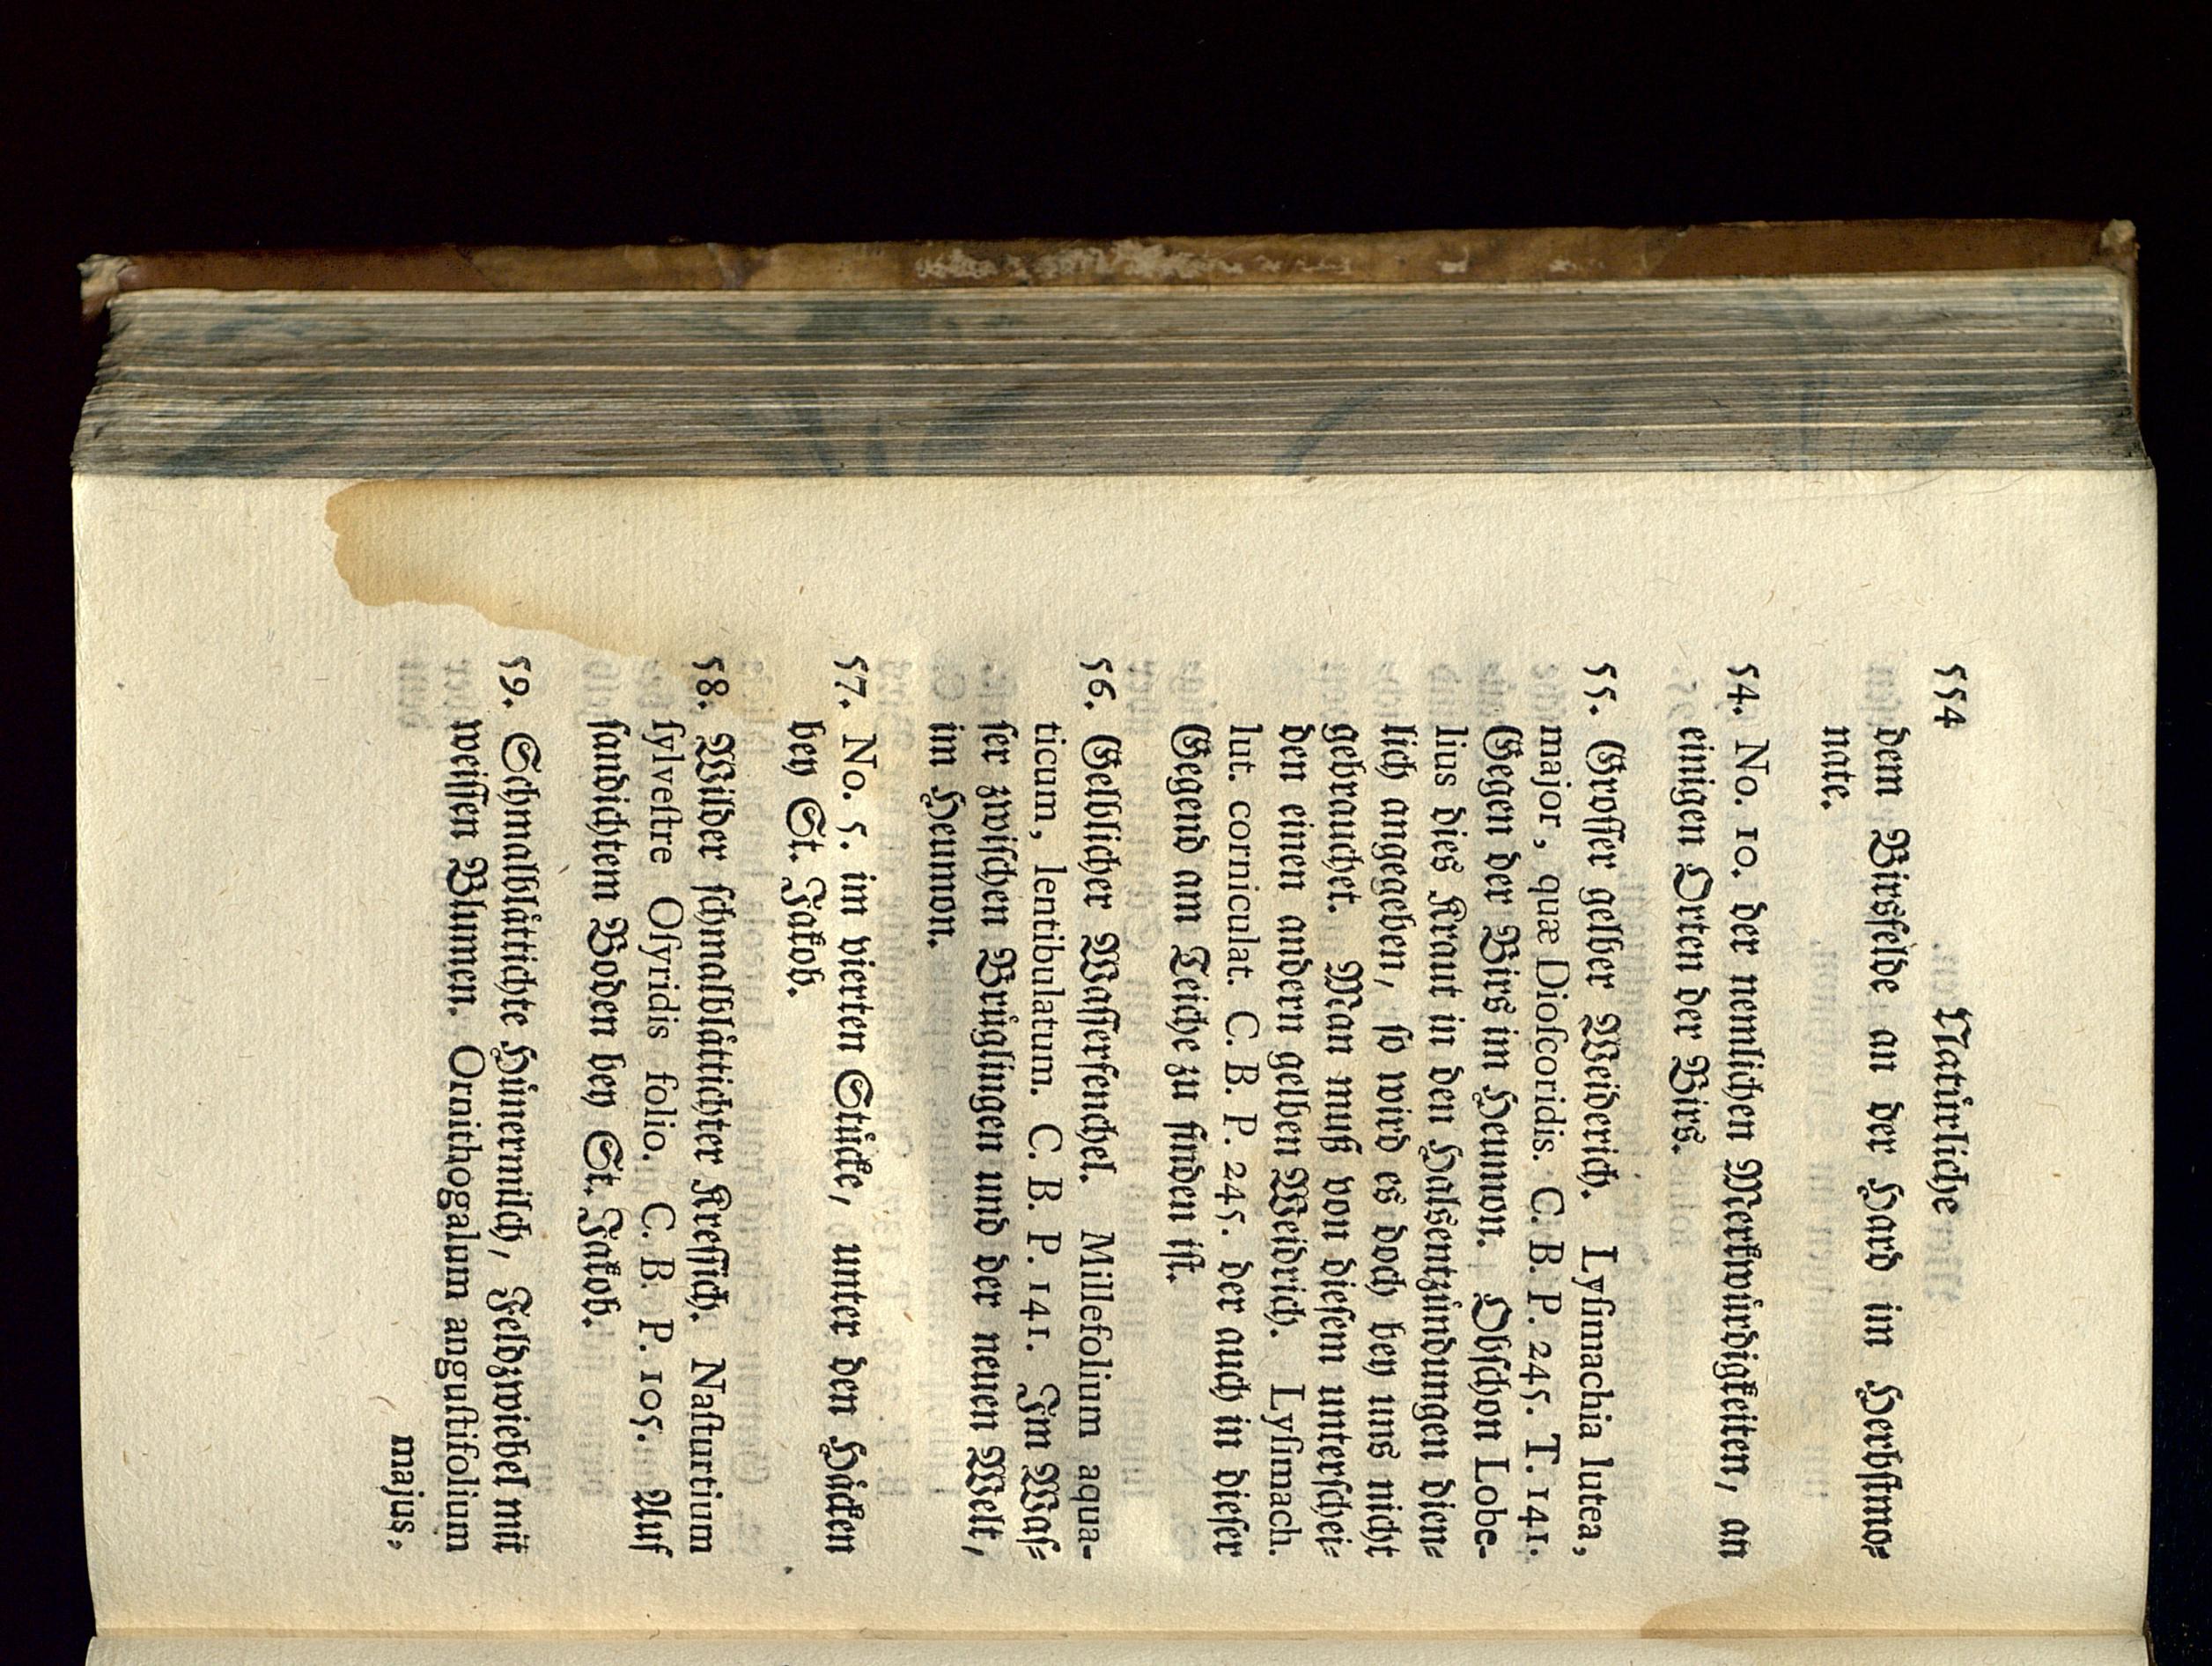 554 Natürliche
dem Birsfelde an der Hard im Herbstmo-
nate.
54. No. 10. der nemlichen Merkwürdigkeiten, an
einigen Orten der Birs.
55. Grosser gelber Weiderich. Lysimachia lutea,
major, quæ Dioscoridis. C. B. P. 245. T. 141.
Gegen der Birs im Heumon. Obschon Lobe-
lius dies Kraut in den Halsentzündungen dien-
lich angegeben, so wird es doch bey uns nicht
gebrauchet. Man muß von diesem unterschei-
den einen andern gelben Weidrich. Lysimach.
lut. corniculat. C. B. P. 245. der auch in dieser
Gegend am Teiche zu finden ist.
56. Gelblicher Wasserfenchel. Millefolium aqua-
ticum, lentibulatum. C. B. P. 141. Im Was-
ser zwischen Brüglingen und der neuen Welt,
im Heumon.
57. No. 5. im vierten Stücke, unter den Häcken
bey St. Jakob.
58. Wilder schmalblättichter Kressich. Nasturtium
sylvestre Osyridis folio. C. B. P. 105. Auf
sandichtem Boden bey St. Jakob.
59. Schmalblättichte Hünermilch, Feldzwiebel mit
weissen Blumen. Ornithogalum angustifolium
majus,